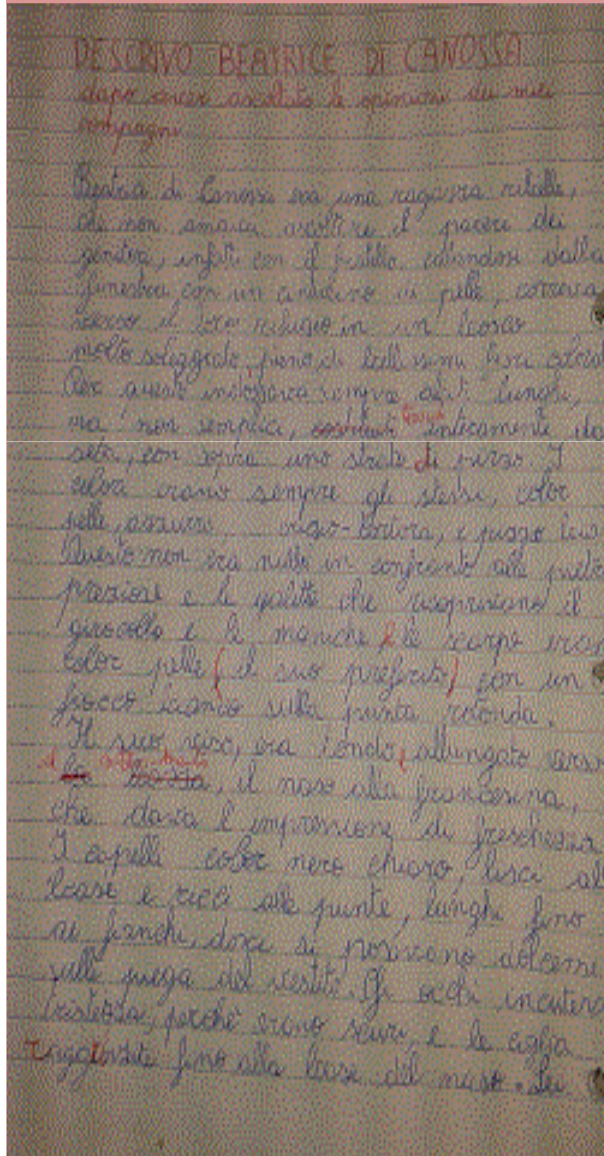 DESCRIVO BEATRICE DI CANOSSA
dopo aver ascoltato le opinioni dei miei
compagni
Beatrice di Canossa era una ragazza ribelle,
che non amava ascoltare il parere dei
genitori, infatti con il fratello, calandosi dalla
finestra, con un in pelle, correva
verso il loro rifugio in un bosco
molto soleggiato, pieno di bellissimi fiori
Per questo indossava sempre abiti lunghi,
ma non semplici, interamente da
seta, con sopra uno strato di
colori erano sempre gli stessi, color
pelle, azzurro, tortora, e
Questo non era nulla in confronto alle pietre
preziose e le che ricoprivano il
girocollo e le maniche e le scarpe eran
color pelle (il suo preferito) con un
fiocco bianco sulla punta rotonda.
Il suo viso, era tondo, allungato verso
il naso alla francesina,
che dava l'impressione di freschezza
I capelli color nero chiaro, lisci all
base e ricci alle punte, lunghi fino
ai fianchi, dove si posavano dolceme
sulle piega del vestito. Gli occhi incuteva
tristezza, perchè erano scuri, e le ciglia
fino alla base del naso. Lei